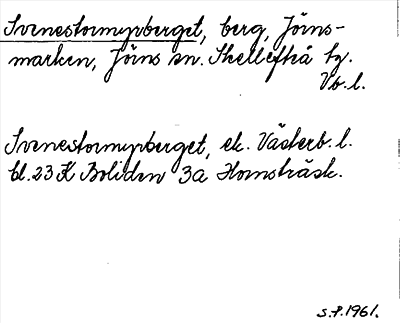 Svenestormyrberget, berg, Jörns-
marken, Jörns sn. Skellefteå tg.
Vb.l.
Svenestormyrberget, ek. Västerb. l.
bl. 23 K Boliden 3a Homsträsk.
S.P. 1961.